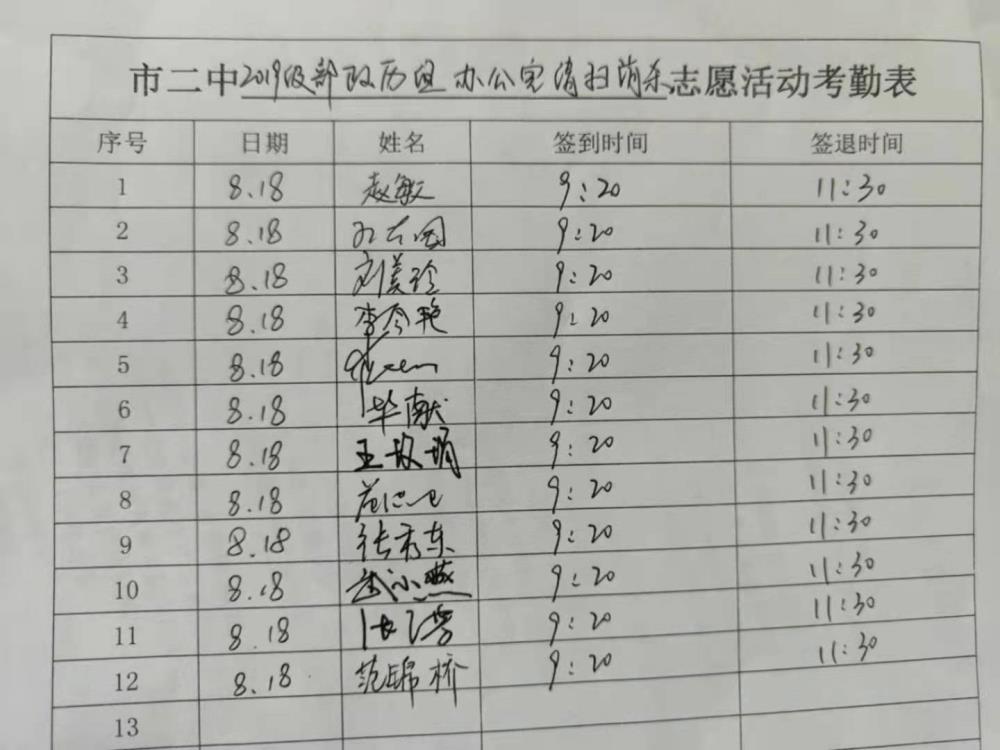 市二中2019级部政历组办公室清扫消杀志愿活动考勤表
序号 日期 姓名 签到时间 签退时间
1 8.18 赵敏 9:20 11:30
2 8.18 9:20 11:30
3 8.18 刘美玲 9:20 11:30
4 8.18 李今艳 9:20 11:30
5 8.18 9:20 11:30
6 8.18 毕献 9:20 11:30
7 8.18 王玫娟 9:20 11:30
8 8.18 9:20 11:30
9 8.18 张秀东 9:20 11:30
10 8.18 武小燕 9:20 11:30
11 8.18 9:20 11:30
12 8.18 范锦桥 9:20 11:30
13